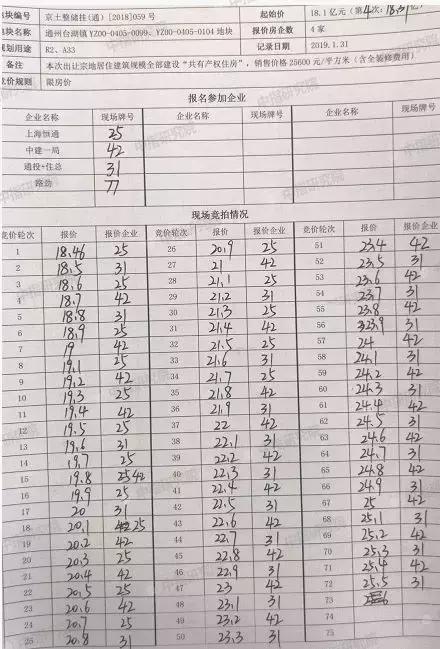 地块编号 京土整储挂(通)[2018]059号 起始价 18.1亿元(第4次:18.31亿
地块名称 通州台湖镇YZ00-0405-0099、YZ00-0405-0104地块 报价房企数 4家
规划用途 R2、A33 记录日期 2019.1.31
备注 本次出让宗地居住建筑规模全部建设“共有产权住房”,销售价格25600元/平方米(含全装修费用)
竞价规则 限房价
报名参加企业
企业名称 现场牌号 企业名称 现场牌号 企业名称 现场牌号
上海恒通 25
中建一局 42
通投+住总 31
路劲 77
现场竞拍情况
竞价轮次 报价 报价企业 竞价轮次 报价 报价企业 竞价轮次 报价 报价企业
1 18.46 25 26 20.9 25 51 23.4 42
2 18.5 31 27 21 42 52 23.5 31
3 18.6 25 28 21.1 25 53 23.6 42
4 18.7 42 29 21.2 31 54 23.7 31
5 18.8 31 30 21.3 25 55 23.8 42
6 18.9 25 31 21.4 42 56 23.9 31
7 19 42 32 21.5 25 57 24 42
8 19.1 25 33 21.6 31 58 24.1 31
9 19.2 42 34 21.7 25 59 24.2 42
10 19.3 25 35 21.8 42 60 24.3 31
11 19.4 42 36 21.9 31 61 24.4 42
12 19.5 25 37 22 42 62 24.5 31
13 19.6 31 38 22.1 31 63 24.6 42
14 19.7 25 39 22.2 42 64 24.7 31
15 19.8 42 40 22.3 31 65 24.8 42
16 19.9 25 41 22.4 42 66 24.9 31
17 20 31 42 22.5 31 67 25 42
18 20.1 25 43 22.6 42 68 25.1 31
19 20.2 42 44 22.7 31 69 25.2 42
20 20.3 25 45 22.8 42 70 25.3 31
21 20.4 42 46 22.9 31 71 25.4 42
22 20.5 25 47 23 42 72 25.5 31
23 20.6 42 48 23.1 31 73
24 20.7 25 49 23.2 42 74
25 20.8 31 50 23.3 31 75